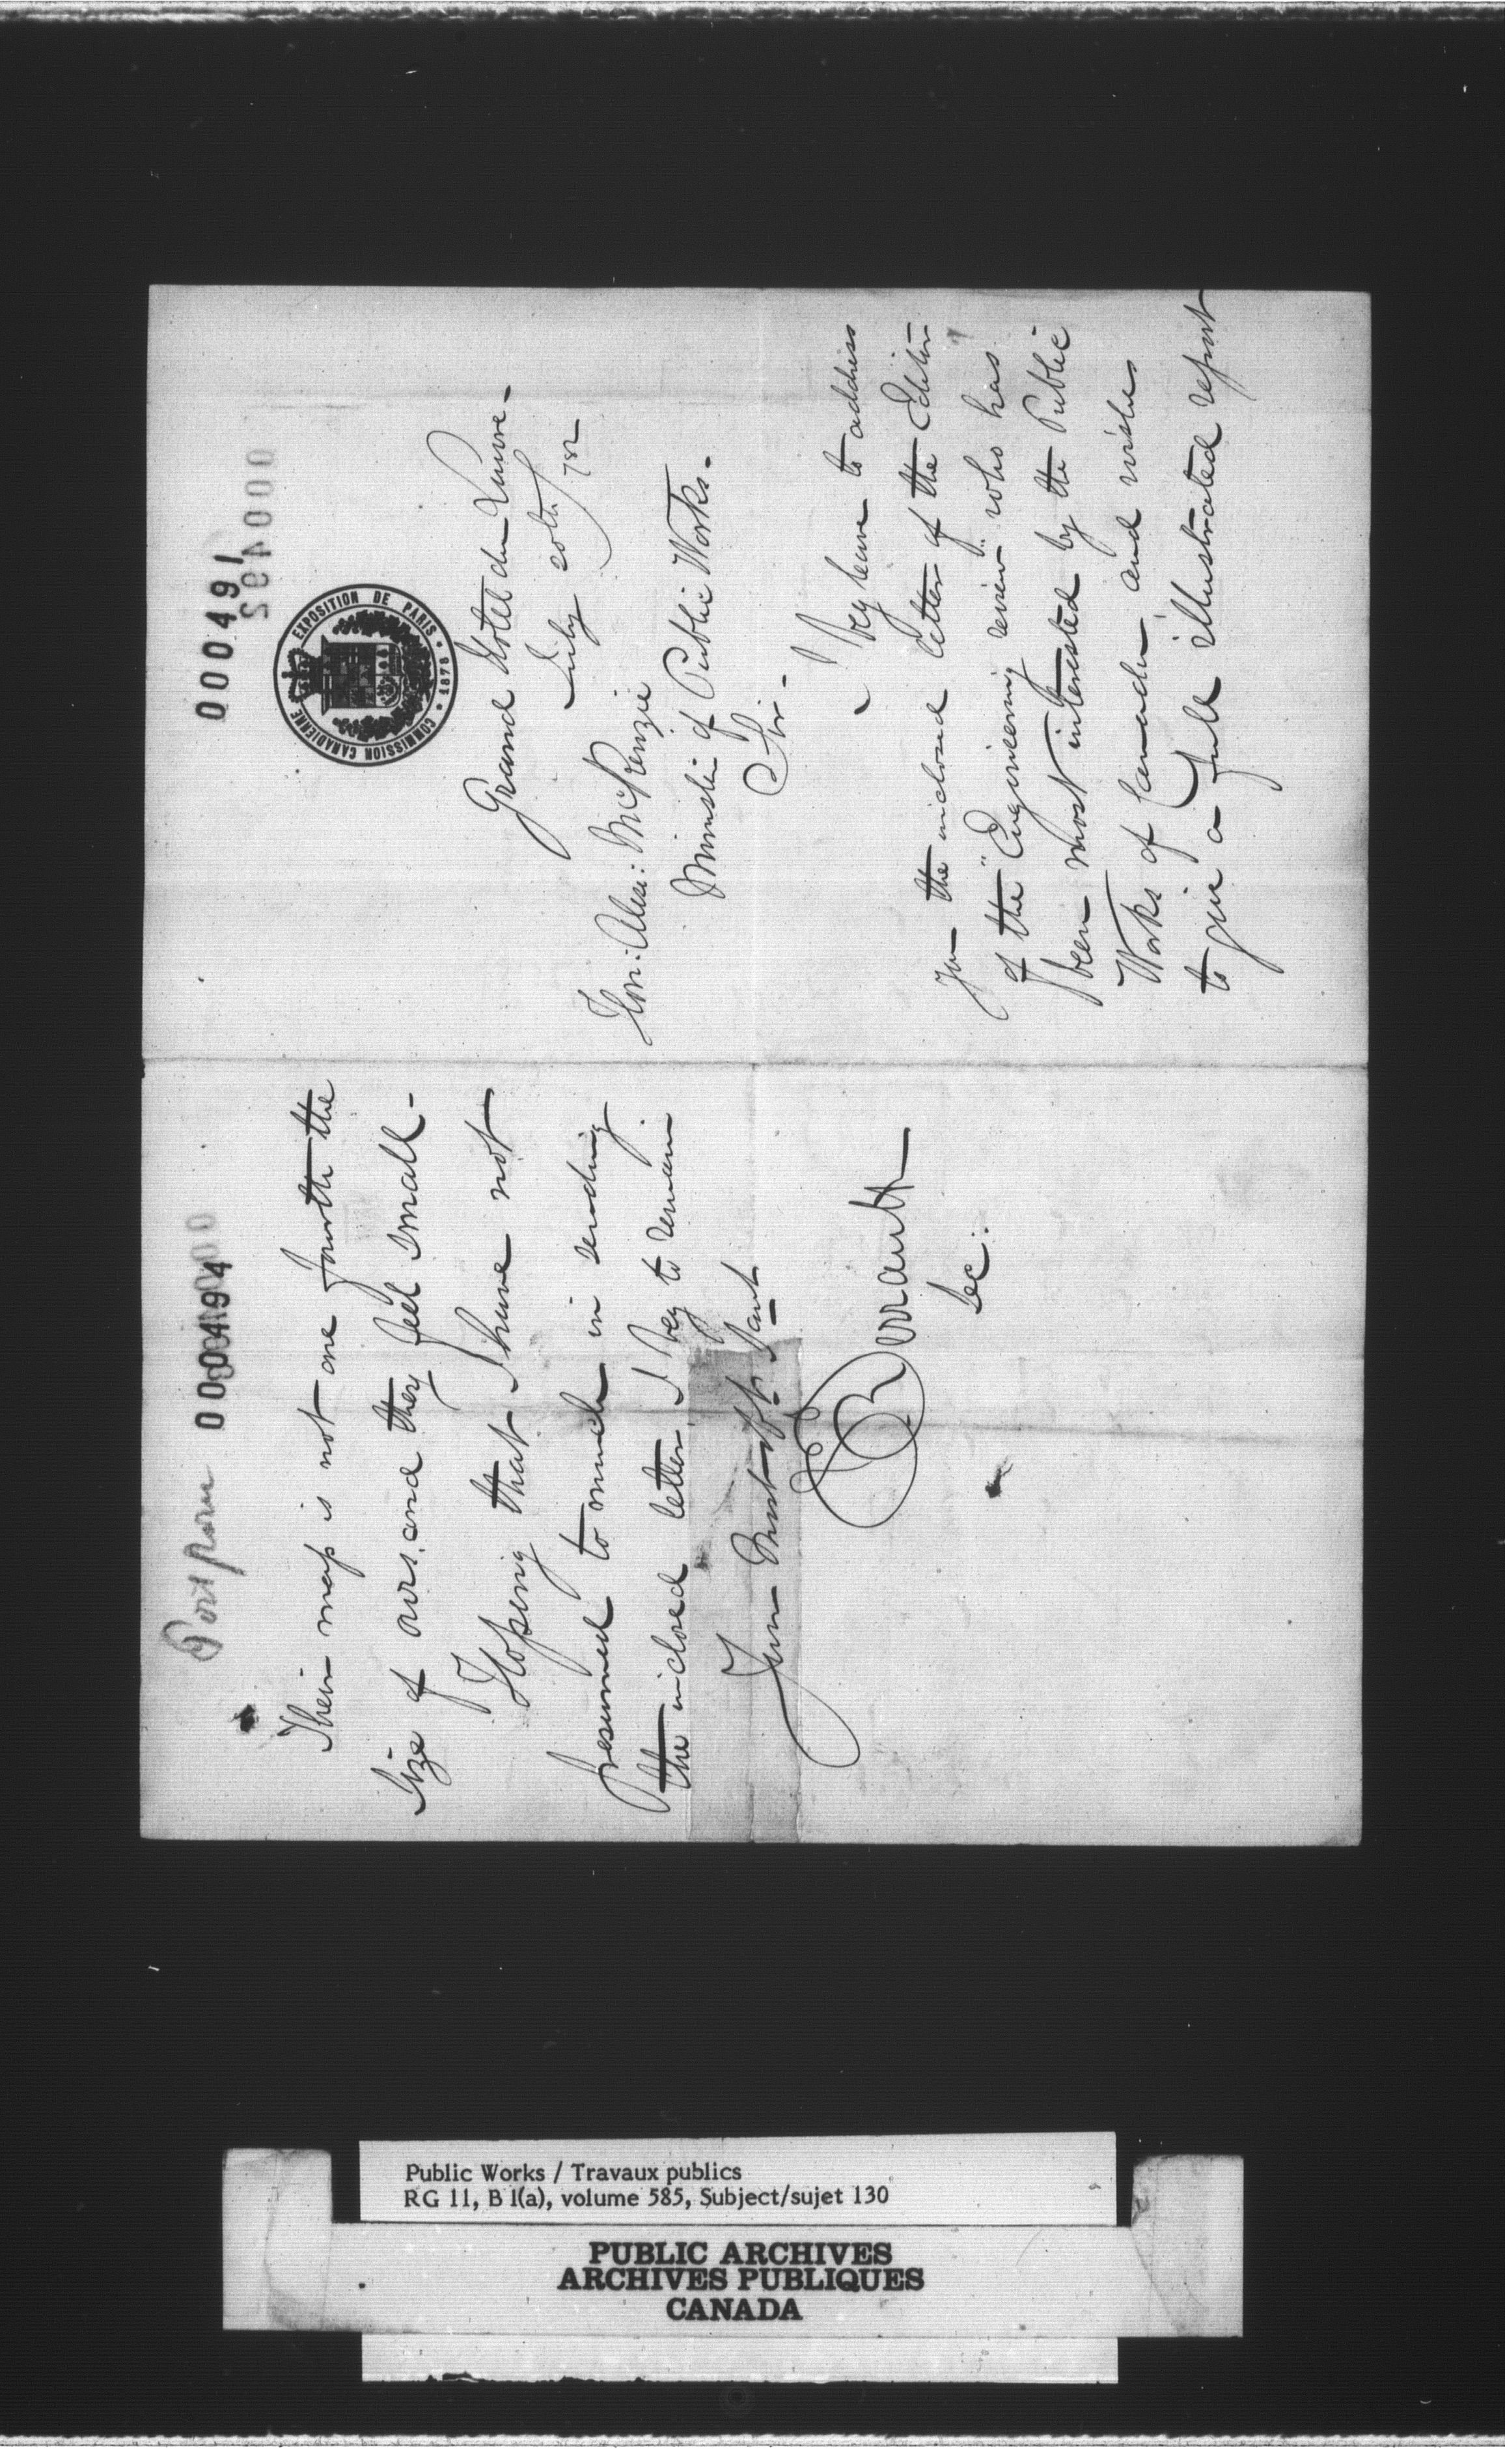 000491
000492
COMMISSION CANADIENNE EXPOSITION DE PARIS • 1878 •
Grand Hotel du Louvre -
July 20th /78
Hon: Alex: McKenzie
Minister of Public Works. -
Sir -
I beg leave to address
you the inclosed letter of the Editor
of the "Engineering review" who has
been most interested by the Public
Works of Canada, and wishes
to give a full illustrated report
000494
Their map is not one fourth the
size of ours, and they feel small -
Hoping that I have not
presumed to much in sending
the inclosed letter, I beg to remain
Your Most Obt. Svant
Perrault
Sec:
Public Works / Travaux publics
RG 11, B 1(a), volume 585, Subject/sujet 130
PUBLIC ARCHIVES
ARCHIVES PUBLIQUES
CANADA